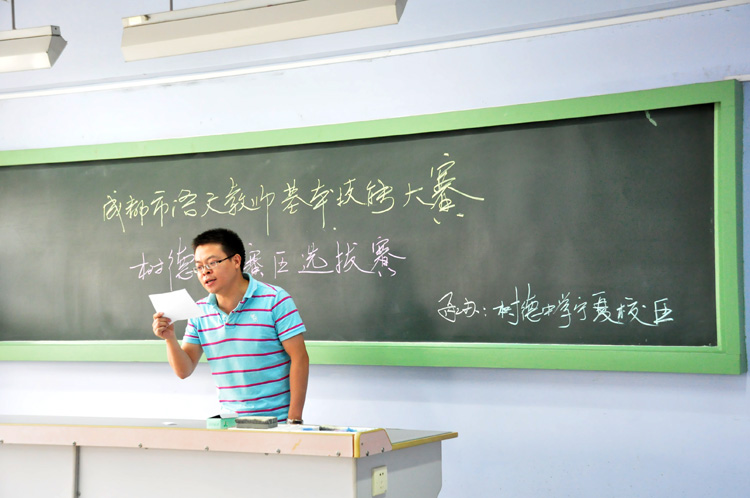 成都市语文教师基本技能大赛
树德 赛区选拔赛
承办：树德中学宁夏校区